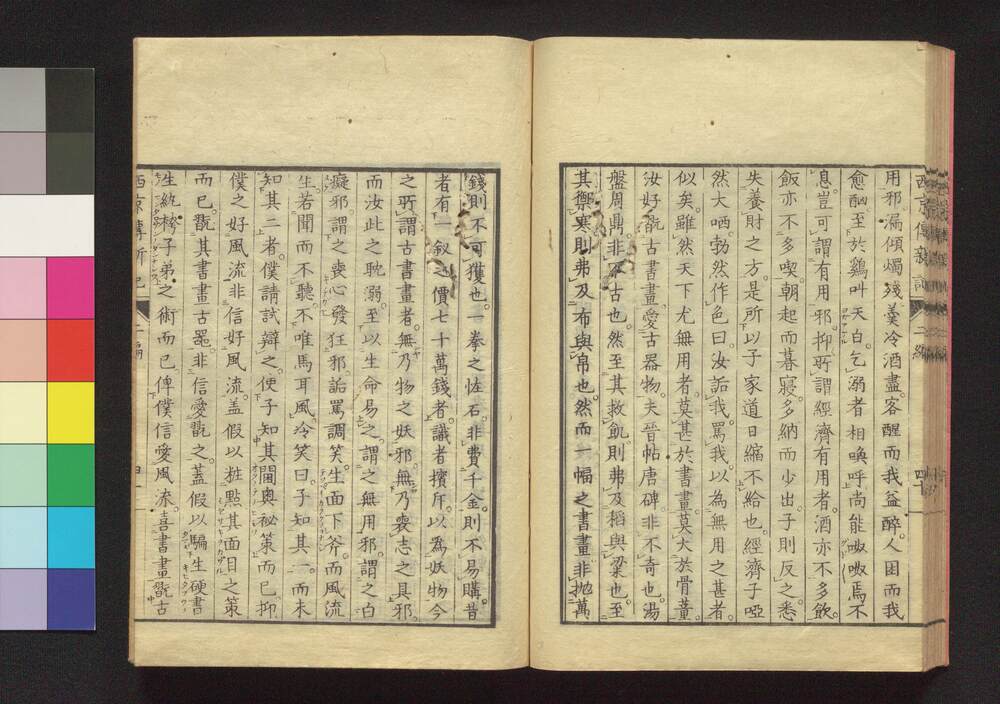 西京傳新記 二編 四十
用邪。漏傾燭殘。羹冷酒盡。客醒而我益醉。人困而我
愈酗。至於鷄叫天白。乞溺者相喚呼。尚能呶呶焉不
息。豈可謂有用邪。抑所謂經濟有用者。酒亦不多飲。
飯亦不多喫。朝起而暮寢。多納而少出。子則反之。悉
失養財之方。是所以子家道日縮不給也。經濟子啞
然大哂。勃然作色曰。汝詬我罵我。以為無用之甚者
似矣。雖然天下尤無用者。莫甚於書畫。莫大於骨董。
汝好翫古書畫。愛古器物。夫晉帖唐碑。非不奇也。湯
盤周鼎。非不古也。然至其救飢。則弗及稻與粱也。至
其禦寒。則弗及布與帛也。然而一幅之書畫。非抛萬
錢則不可獲也。一拳之怪石。非費千金則不易購。昔
者有一釵之價七十萬錢者。識者擯斥。以為妖物。今
之所謂古書畫者。無乃物之妖邪。無乃喪志之具邪。
而汝此之耽溺。至以生命易之。謂之無用邪。謂之白
癡邪。謂之喪心發狂邪。詬罵調笑。生面下斧。而風流
生。若聞而不聽。不唯馬耳風。冷笑曰。子知其一。而未
知其二者。僕請試辯之。使子知其閫奧祕策而已。抑
僕之好風流。非信好風流。盖假以粧點其面目之策
而已。翫其書畫古器。非信愛翫之。盖假以騙生硬書
生紈袴子弟之術而已。俾僕信愛風流。喜書畫翫古
西京傳新記 二編 四十一